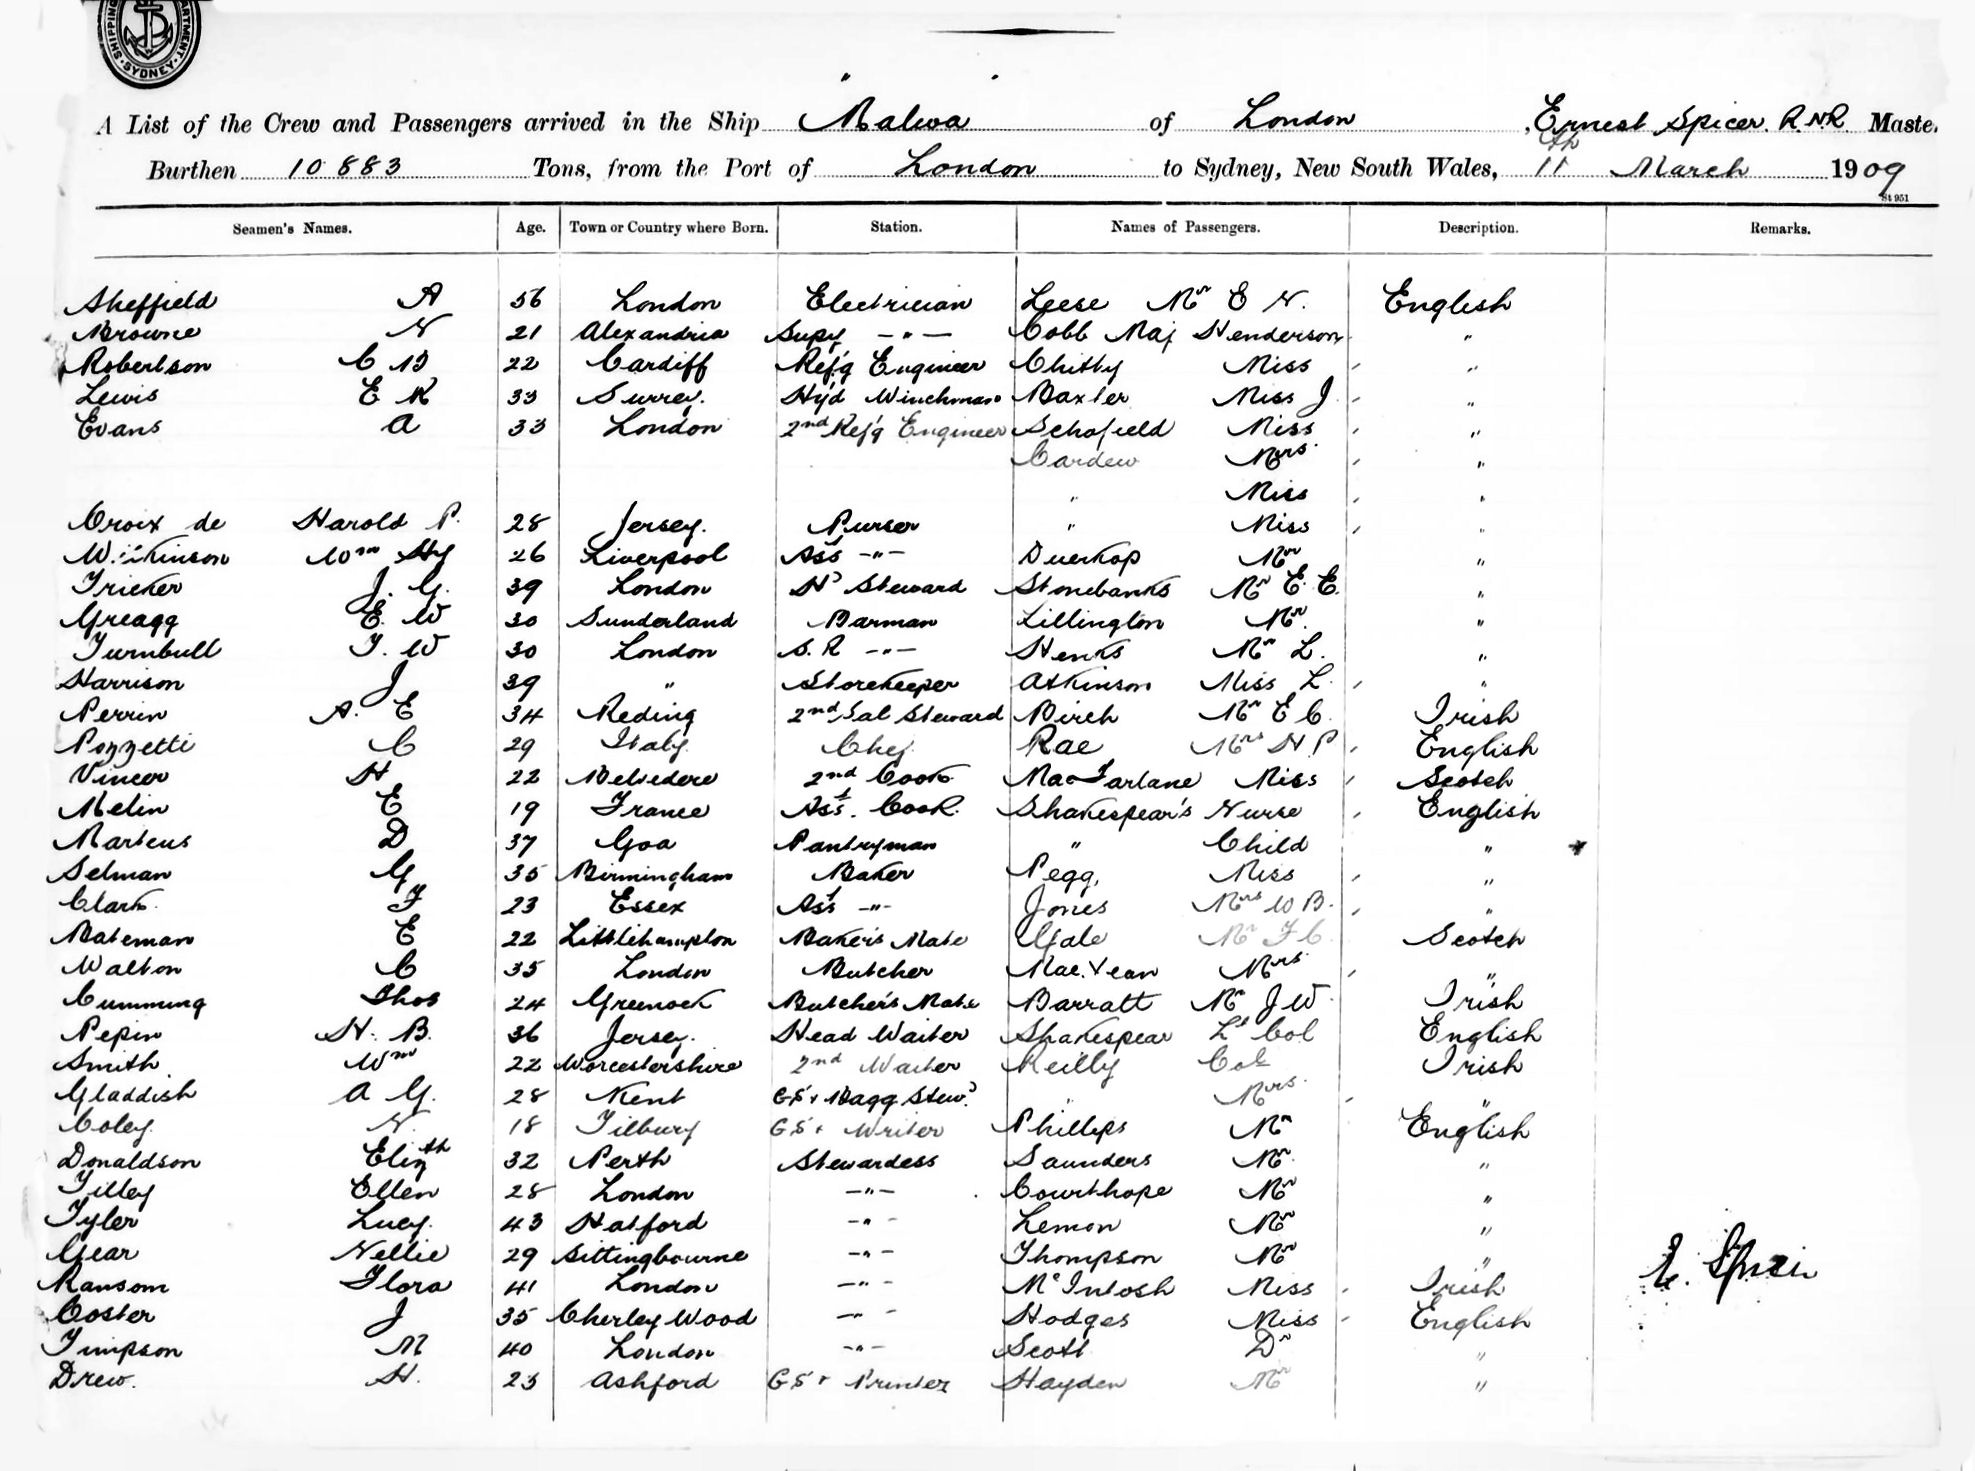 SHIPPING DEPARTMENT · SYDNEY ·
A List of the Crew and Passengers arrived in the Ship "Malwa" of London, Ernest Spicer. R.N.R. Maste,
Burthen 10883 Tons, from the Port of London to Sydney, New South Wales, 11th March 1909
St 951
Seamen's Names. Age. Town or Country where Born. Station. Names of Passengers. Description. Remarks.
Sheffield A 56 London Electrician Leese Mr E N. English
Browne N 21 Alexandria Supy —"— Cobb Maj Henderson "
Robertson C B 22 Cardiff Refg Engineer Chitty Miss "
Lewis E K 33 Surrey. Hyd Winchman Baxter Miss J "
Evans A 33 London 2nd Refg Engineer Schofield Miss "
Cardew Mrs "
" Miss "
Croix de Harold P. 28 Jersey. Purser " Miss "
Wilkinson Wm Hy 26 Liverpool Asst —"— Duerkop Mr "
Tricker J. G. 39 London Hd Steward Stonebanks Mr E. E. "
Greagg E. W 30 Sunderland Barman Lillington Mr. "
Turnbull T. W 30 London S. R —"— Henks Mr L. "
Harrison J 39 " Storekeeper Atkinson Miss L. "
Perrin A. E 34 Reding 2nd Sal Steward Birch Mr E C. Irish
Pozzetti C 29 Italy Chef Rae Mrs H P English
Vincer H 22 Belvedere 2nd Cook MacFarlane Miss Scotch
Melin E 19 France Asst. Cook. Shakespear's Nurse English
Martens D 37 Goa Pantryman " Child "
Selman G 35 Birmingham Baker Pegg, Miss "
Clark. F 23 Essex Asst —"— Jones Mrs W B. "
Bateman E 22 Littlehampton Baker's Mate Gale Mr F C. Scotch
Walton C 35 London Butcher Mac.Vean Mrs "
Cumming Thos 24 Greenock Butcher's Mate Barratt Mr J W. Irish
Pepin H. B. 36 Jersey. Head Waiter Shakespear Lt Col English
Smith Wm 22 Worcestershire 2nd Waiter Reilly Col Irish
Gladdish A G. 28 Kent G.S. & Bagg Stewd " Mrs "
Coley. N. 18 Tilbury G.S. & Writer Phillips Mr English
Donaldson Elizth 32 Perth Stewardess Saunders Mr "
Tilley Ellen 28 London —"— Courthope Mr "
Tyler Lucy. 43 Hatford —"— Lemon Mr "
Gear Nellie 29 Sittingbourne —"— Thompson Mr "
Ransom Flora 41 London —"— McIntosh Miss Irish
Coster J 35 Cherley Wood —"— Hodges Miss English
Timpson M 40 London —"— Scott Dr "
Drew. H. 23 Ashford G.S. & Printer Hayden Mr "
E. Spicer